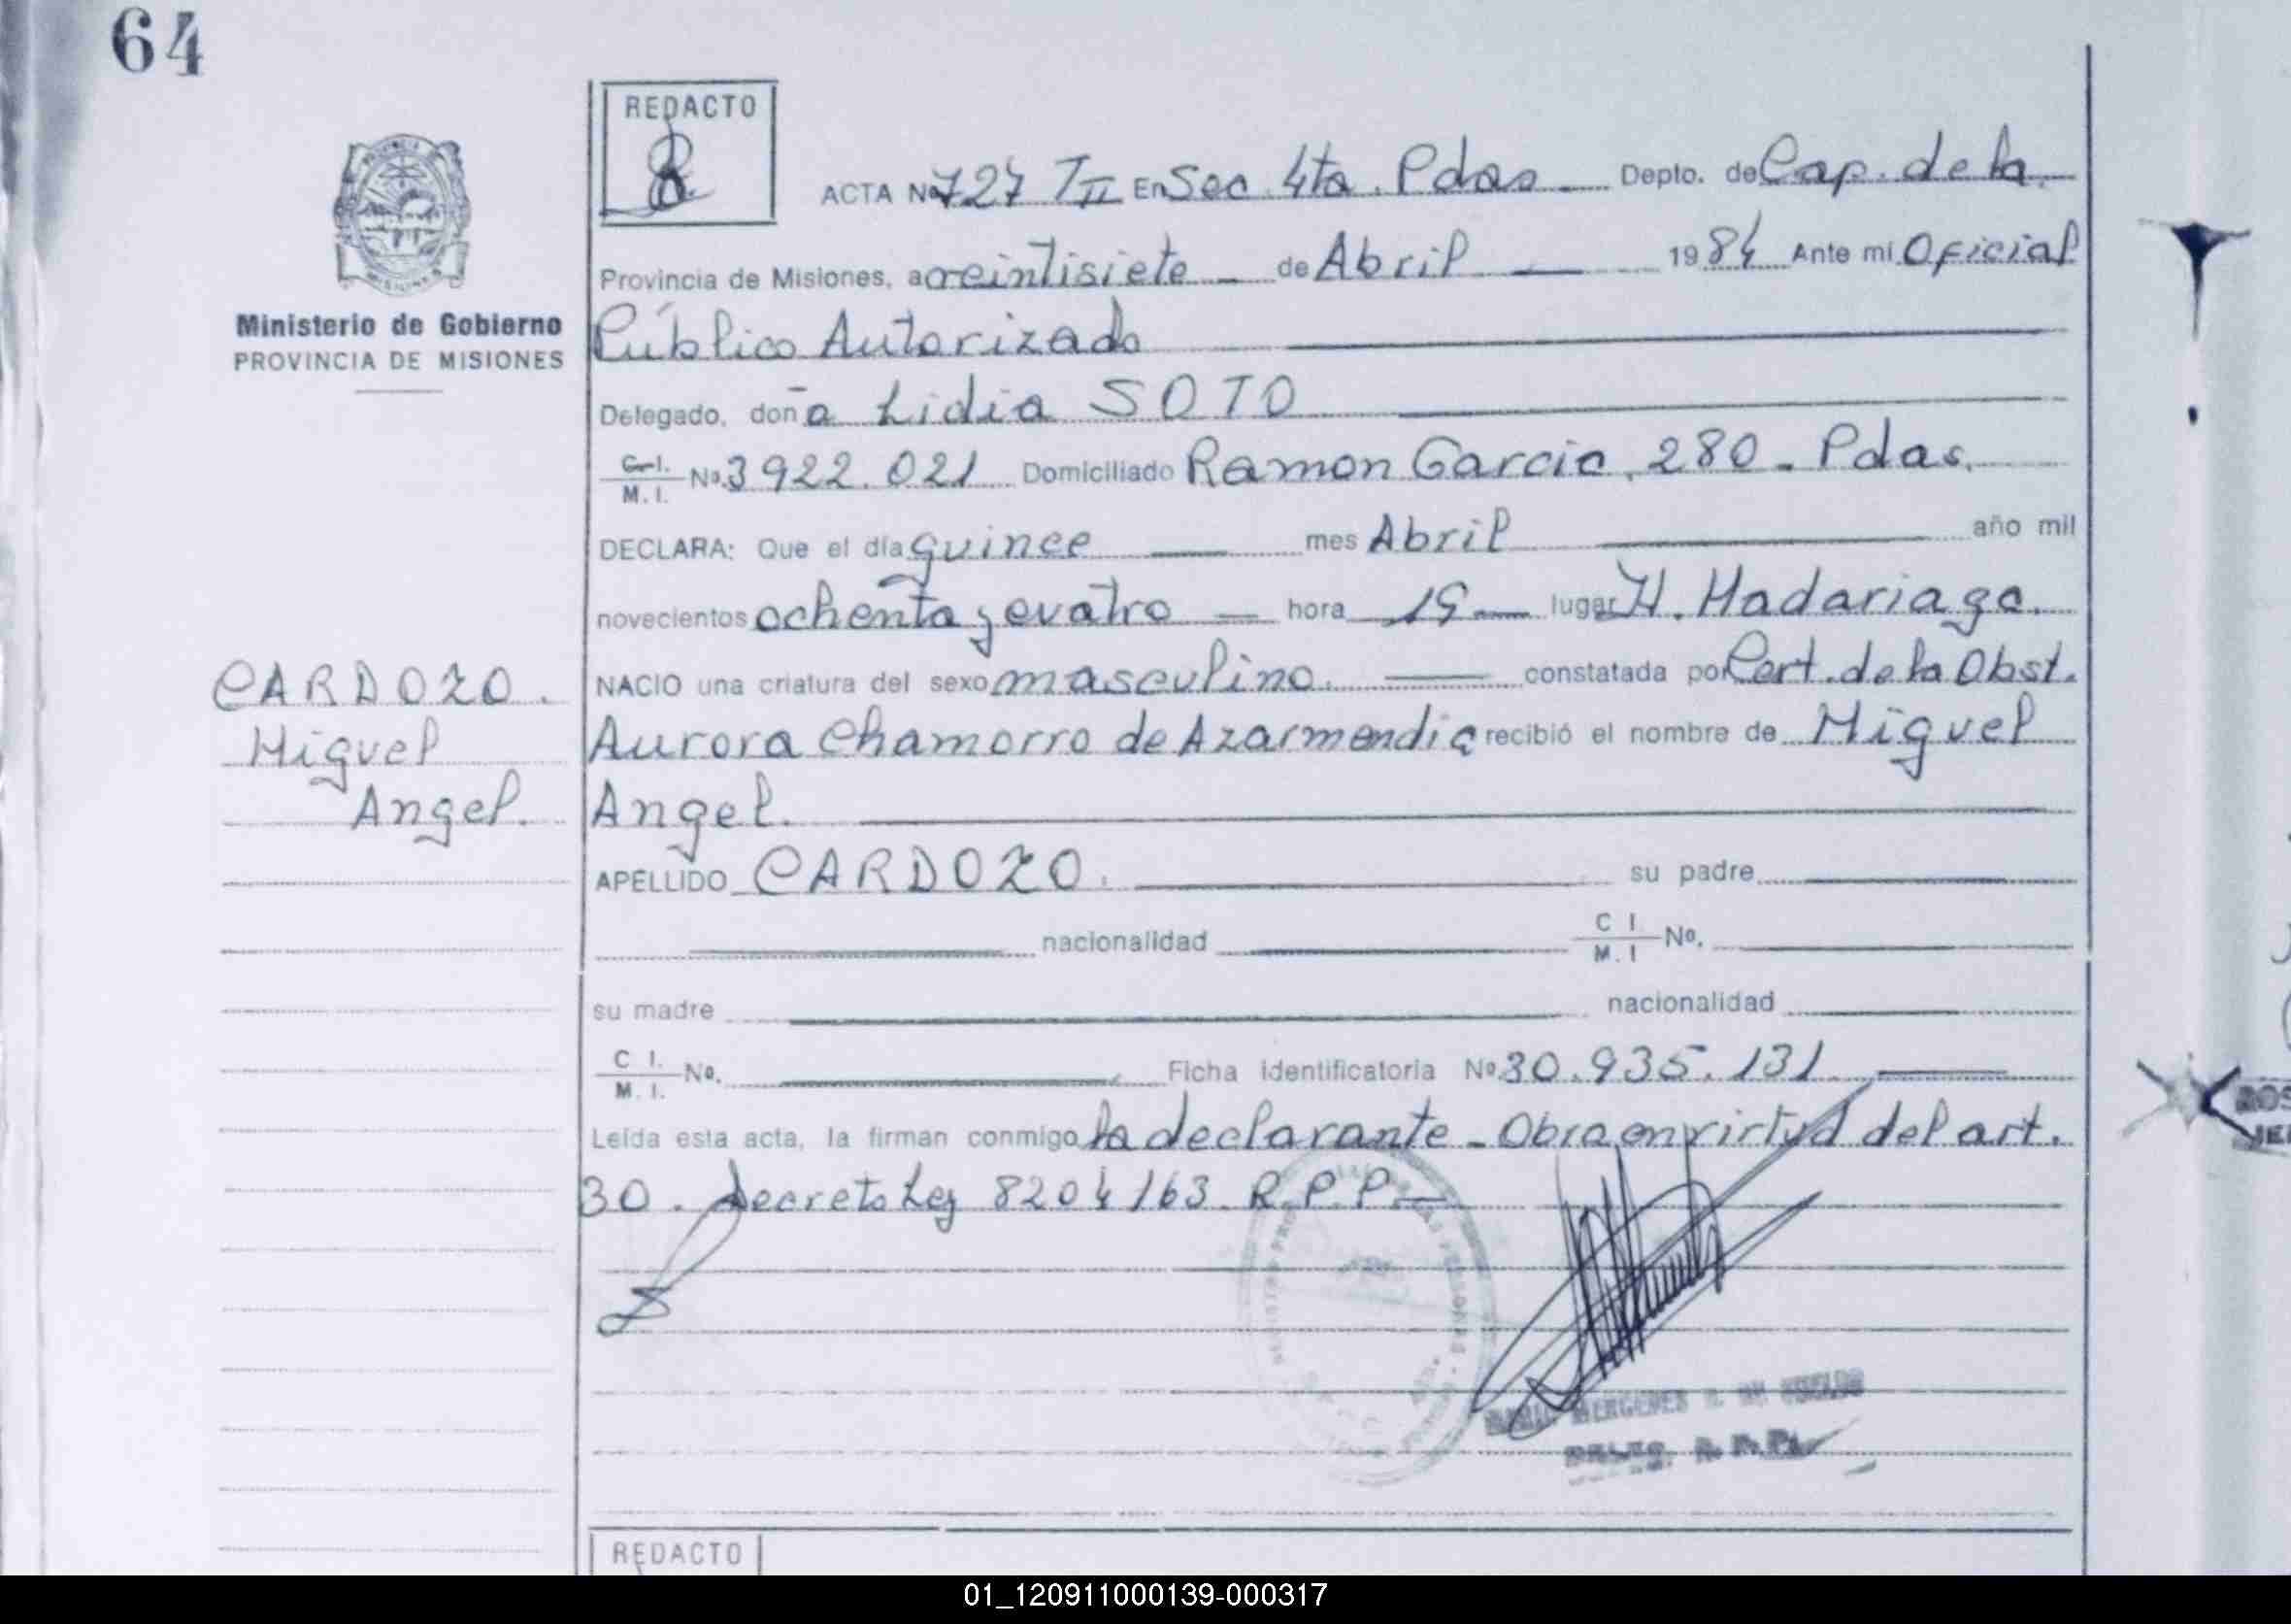 64
REDACTO
ACTA Nº 727 TII En Sec. 4ta. Pdas Depto. de Cap. de la
Provincia de Misiones, a veintisiete de Abril 1984 Ante mi Oficial
Ministerio de Gobierno
PROVINCIA DE MISIONES
Público Autorizado
Delegado, doña Lidia SOTO
C.I. M.I. Nº 3922.021 Domiciliado Ramon Garcia, 280 - Pdas.
DECLARA: Que el día quince mes Abril año mil
novecientos ochenta y cuatro hora 15 lugar H. Madariaga.
CARDOZO.
Miguel
Angel.
NACIO una criatura del sexo masculino. constatada por Cert. de la Obst.
Aurora Chamorro de Azarmendia recibió el nombre de Miguel
Angel.
APELLIDO CARDOZO. su padre
nacionalidad C I M.I Nº.
su madre nacionalidad
C I. M. I. Nº. Ficha identificatoria Nº 30.935.131
Leída esta acta, la firman conmigo la declarante - Obra en virtud del art.
30. Decreto Ley 8204/63. R.P.P.
R. P. P.
REDACTO
01_120911000139-000317